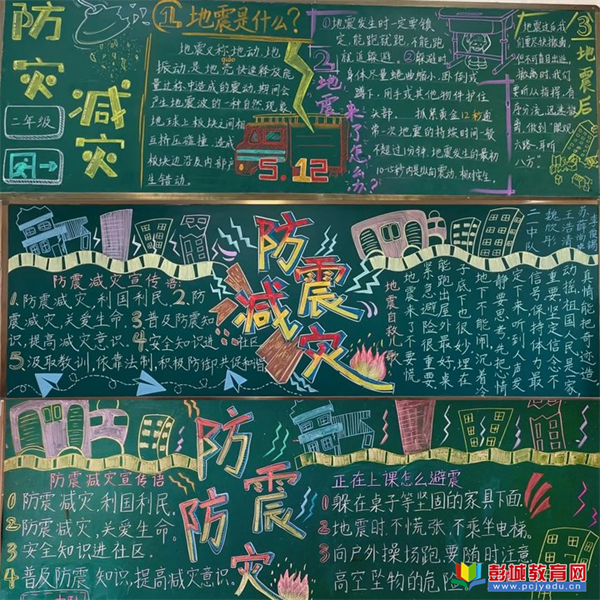 防灾
减灾
二年级
1
地震是什么？
地震又称地动、地
振动，是地壳快速释放能
qiào
量过程中造成的震动，期间会
产生地震波的一种自然现象。
地球上板块之间相
互挤压碰撞，造成
板块边沿及内部产
生错动。
5.12
2
地震来了怎么办？
①地震发生时一定要镇
定，能跑就跑，不能跑
就近躲避。②躲避时
身体尽量蜷曲缩小，卧倒或
蹲下，用手或其他物件护住
头部。抓紧黄金12秒，通
常一次地震的持续时间一般
不超过1分钟，地震发生的最初
3
地震后
防震减灾
防震减灾宣传语：
1.防震减灾，利国利民。2.防
震减灾，关爱生命。3.普及防震知
识，提高减灾意识。4.安全知识进社区
5.汲取教训，依靠法制，积极防御共促和谐
地震自救儿歌
地震来了不要慌
紧急避险很重要
能跑出屋外最好
子底下也很妙
地下不能闹
静要思考
定下来听到人声
信号保持体力最
重要坚定信念不
动摇祖国人民是一家
真情能把奇迹造
二中队
防震防灾
防震减灾宣传语
1 防震减灾，利国利民。
2 防震减灾，关爱生命。
3 安全知识进社区。
4 普及防震知识，提高减灾意识。
正在上课怎么避震
1 躲在桌子等坚固的家具下面。
2 地震时，不慌张，不乘坐电梯。
3 向户外操场跑，要随时注意
高空坠物的危险
彭城教育网
www.pcjyedu.cn